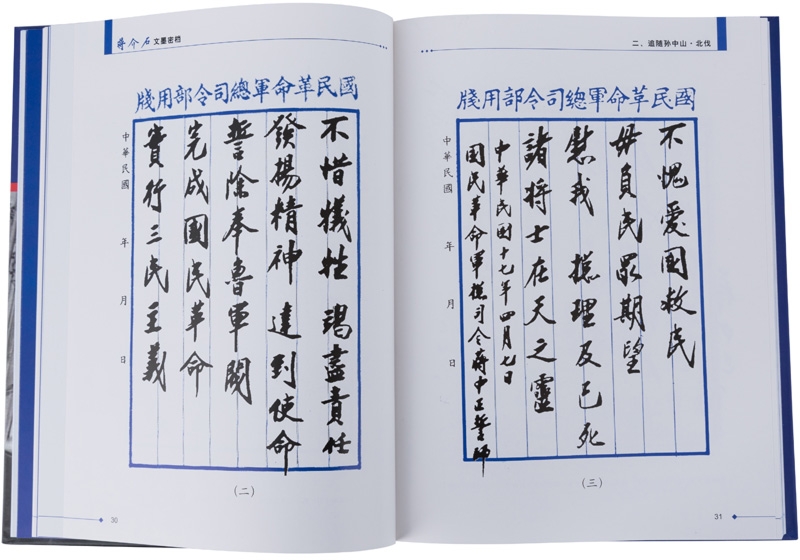 蒋介石文墨密档
國民革命軍總司令部用牋
不惜犧牲 竭盡責任
發揚精神 達到使命
誓除奉魯軍閥
完成國民革命
實行三民主義
中華民國 年 月 日
(二)
30
二、追随孙中山·北伐
國民革命軍總司令部用牋
不愧愛國救民
毋負民眾期望
慰我 揔理及已死
諸將士在天之靈
中華民國十七年四月七日
國民革命軍揔司令蔣中正誓師
中華民國 年 月 日
(三)
31